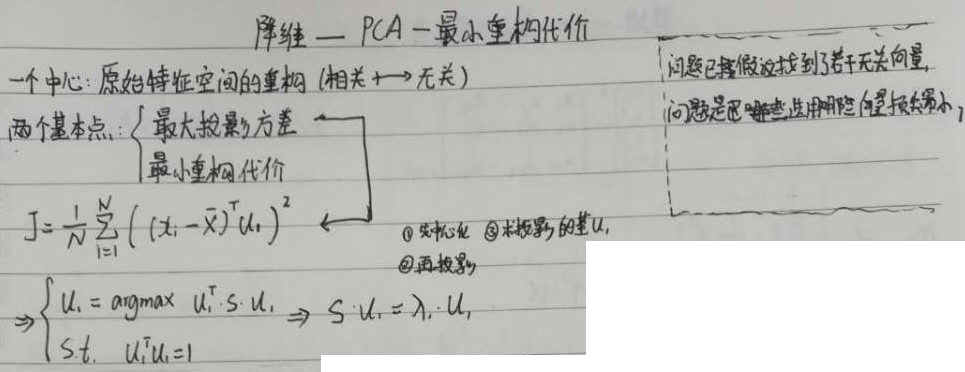 降维 — PCA — 最小重构代价
一个中心: 原始特征空间的重构 (相关 ⟷ 无关)
两个基本点: { 最大投影方差
最小重构代价
J = \frac{1}{N} \sum_{i=1}^{N} ( (x_i - \bar{x})^T u_1 )^2
① 先中心化 ③ 求投影的基 u_1
② 再投影
⇒ { u_1 = argmax u_1^T · S · u_1 ⇒ S · u_1 = λ_1 · u_1
s.t. u_1^T u_1 = 1
问题已假设找到了若干无关向量,
问题是 选用哪些向量损失最小,